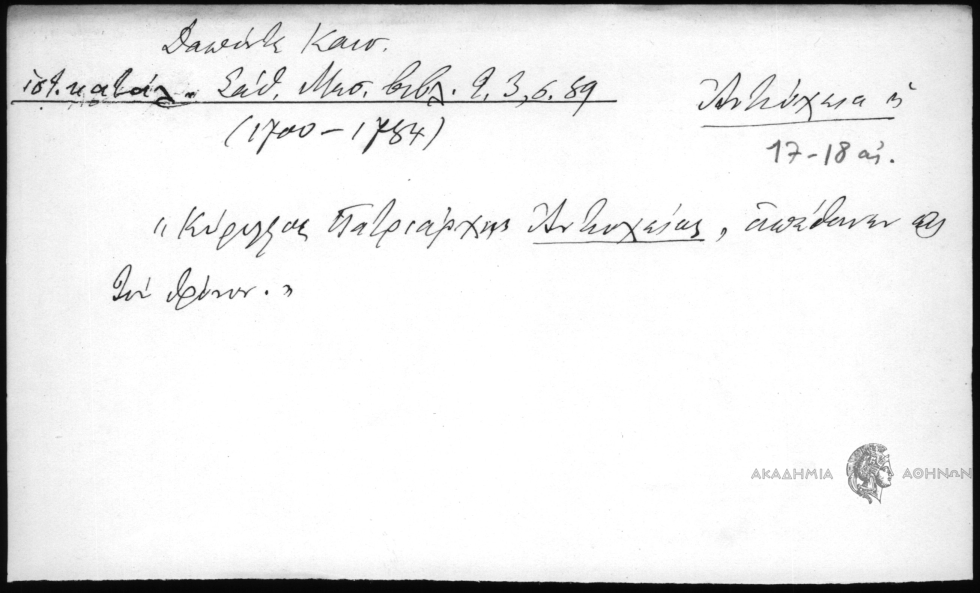 Δαπόντε Καισ.
ἱστ. κατάλ. Σάθ. Μεσ. βιβλ. τ. 3, σ. 89
(1700 – 1784)
Ἀντιόχεια ἡ
17-18 αἰ.
"Κύριλλος Πατριάρχης Ἀντιοχείας, ἀπέθανεν εἰς
τόν θρόνον."
ΑΚΑΔΗΜΙΑ ΑΘΗΝΩΝ